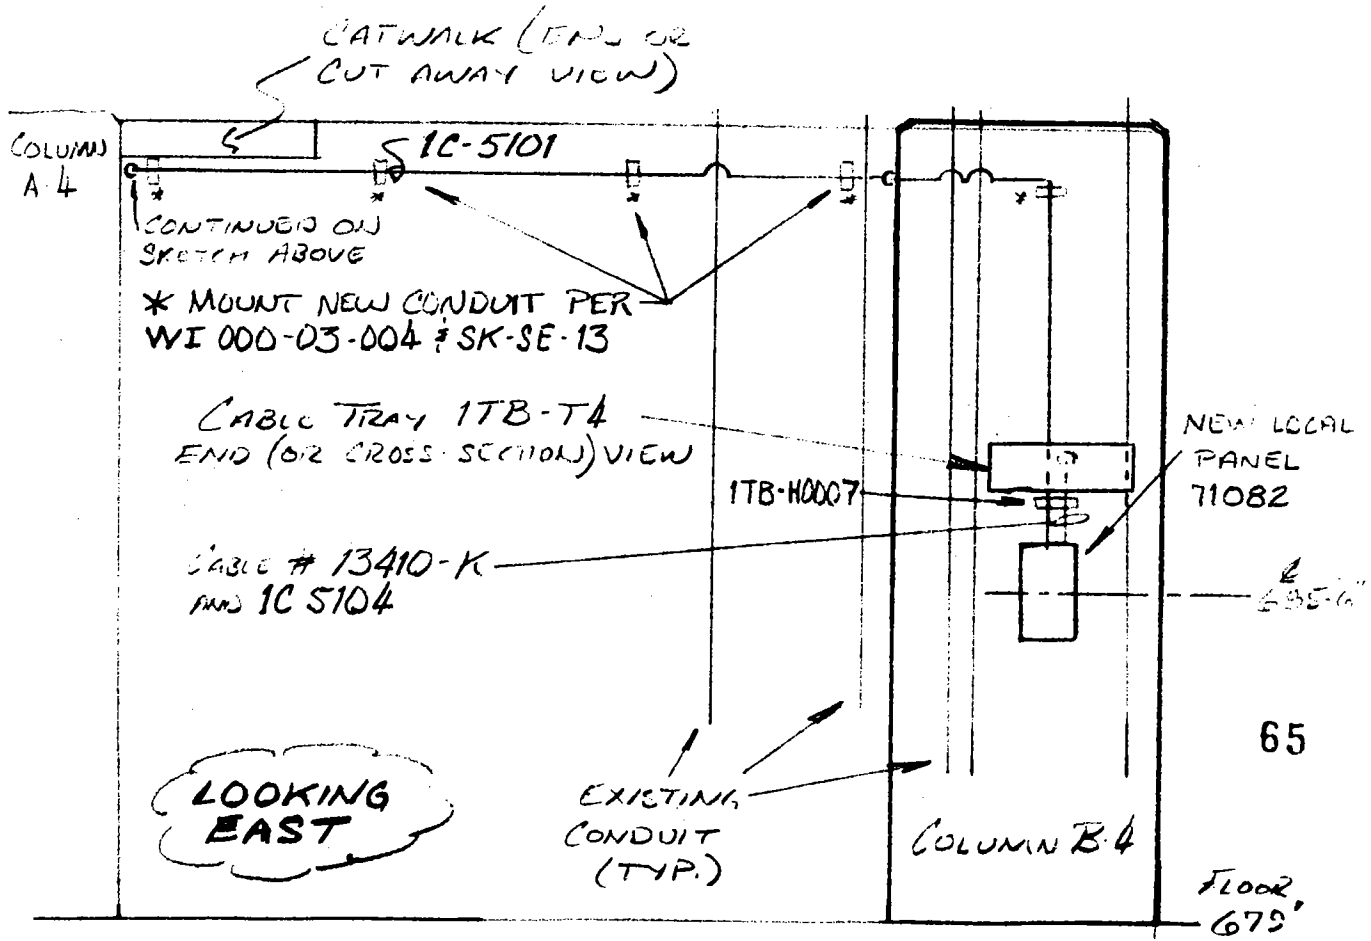 CATWALK (END OR
CUT AWAY VIEW)
COLUMN
A-4
1C-5101
*
*
*
*
*
CONTINUED ON
SKETCH ABOVE
* MOUNT NEW CONDUIT PER
WI 000-03-004 & SK-SE-13
CABLE TRAY 1TB-T4
END (OR CROSS-SECTION) VIEW
NEW LOCAL
PANEL
71082
1TB-H0007
CABLE # 13410-K
AND 1C 5104
65
LOOKING
EAST
EXISTING
CONDUIT
(TYP.)
COLUMN B-4
FLOOR